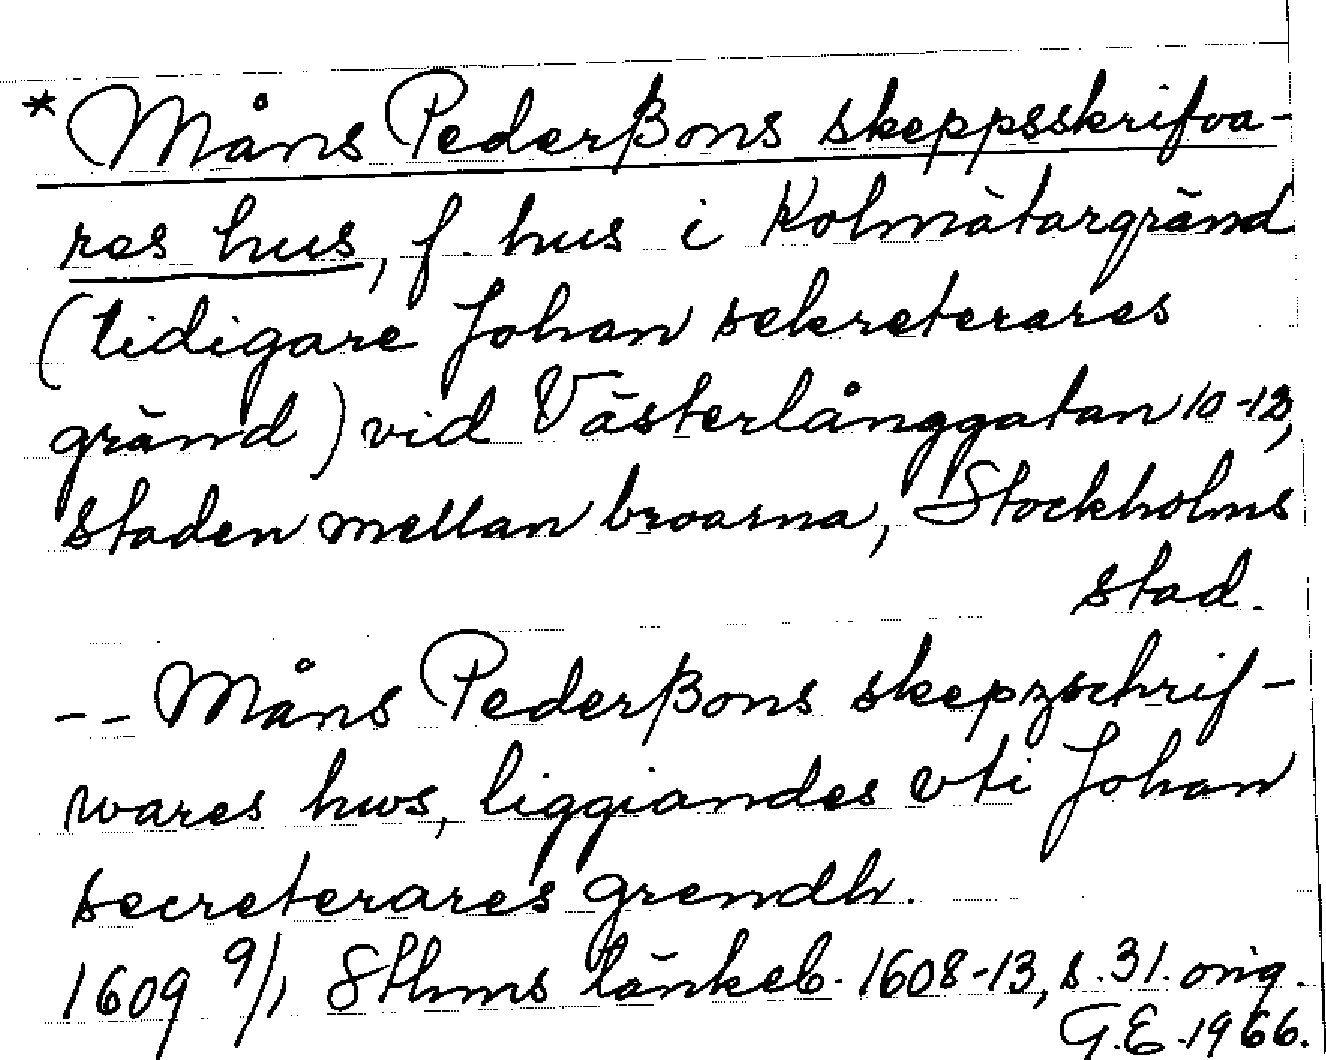 * Måns Pederßons skeppsskrifva-
res hus, f. hus i Kolmätargränd
(tidigare Johan sekreterares
gränd) vid Västerlånggatan 10-12,
staden mellan broarna, Stockholms
stad.
-- Måns Pederßons skepzschrif-
wares hws, liggiandes vti Johan
secreterares grendh.
1609 9/1 Sthms tänkeb. 1608-13, s. 31. orig.
G.E. 1966.